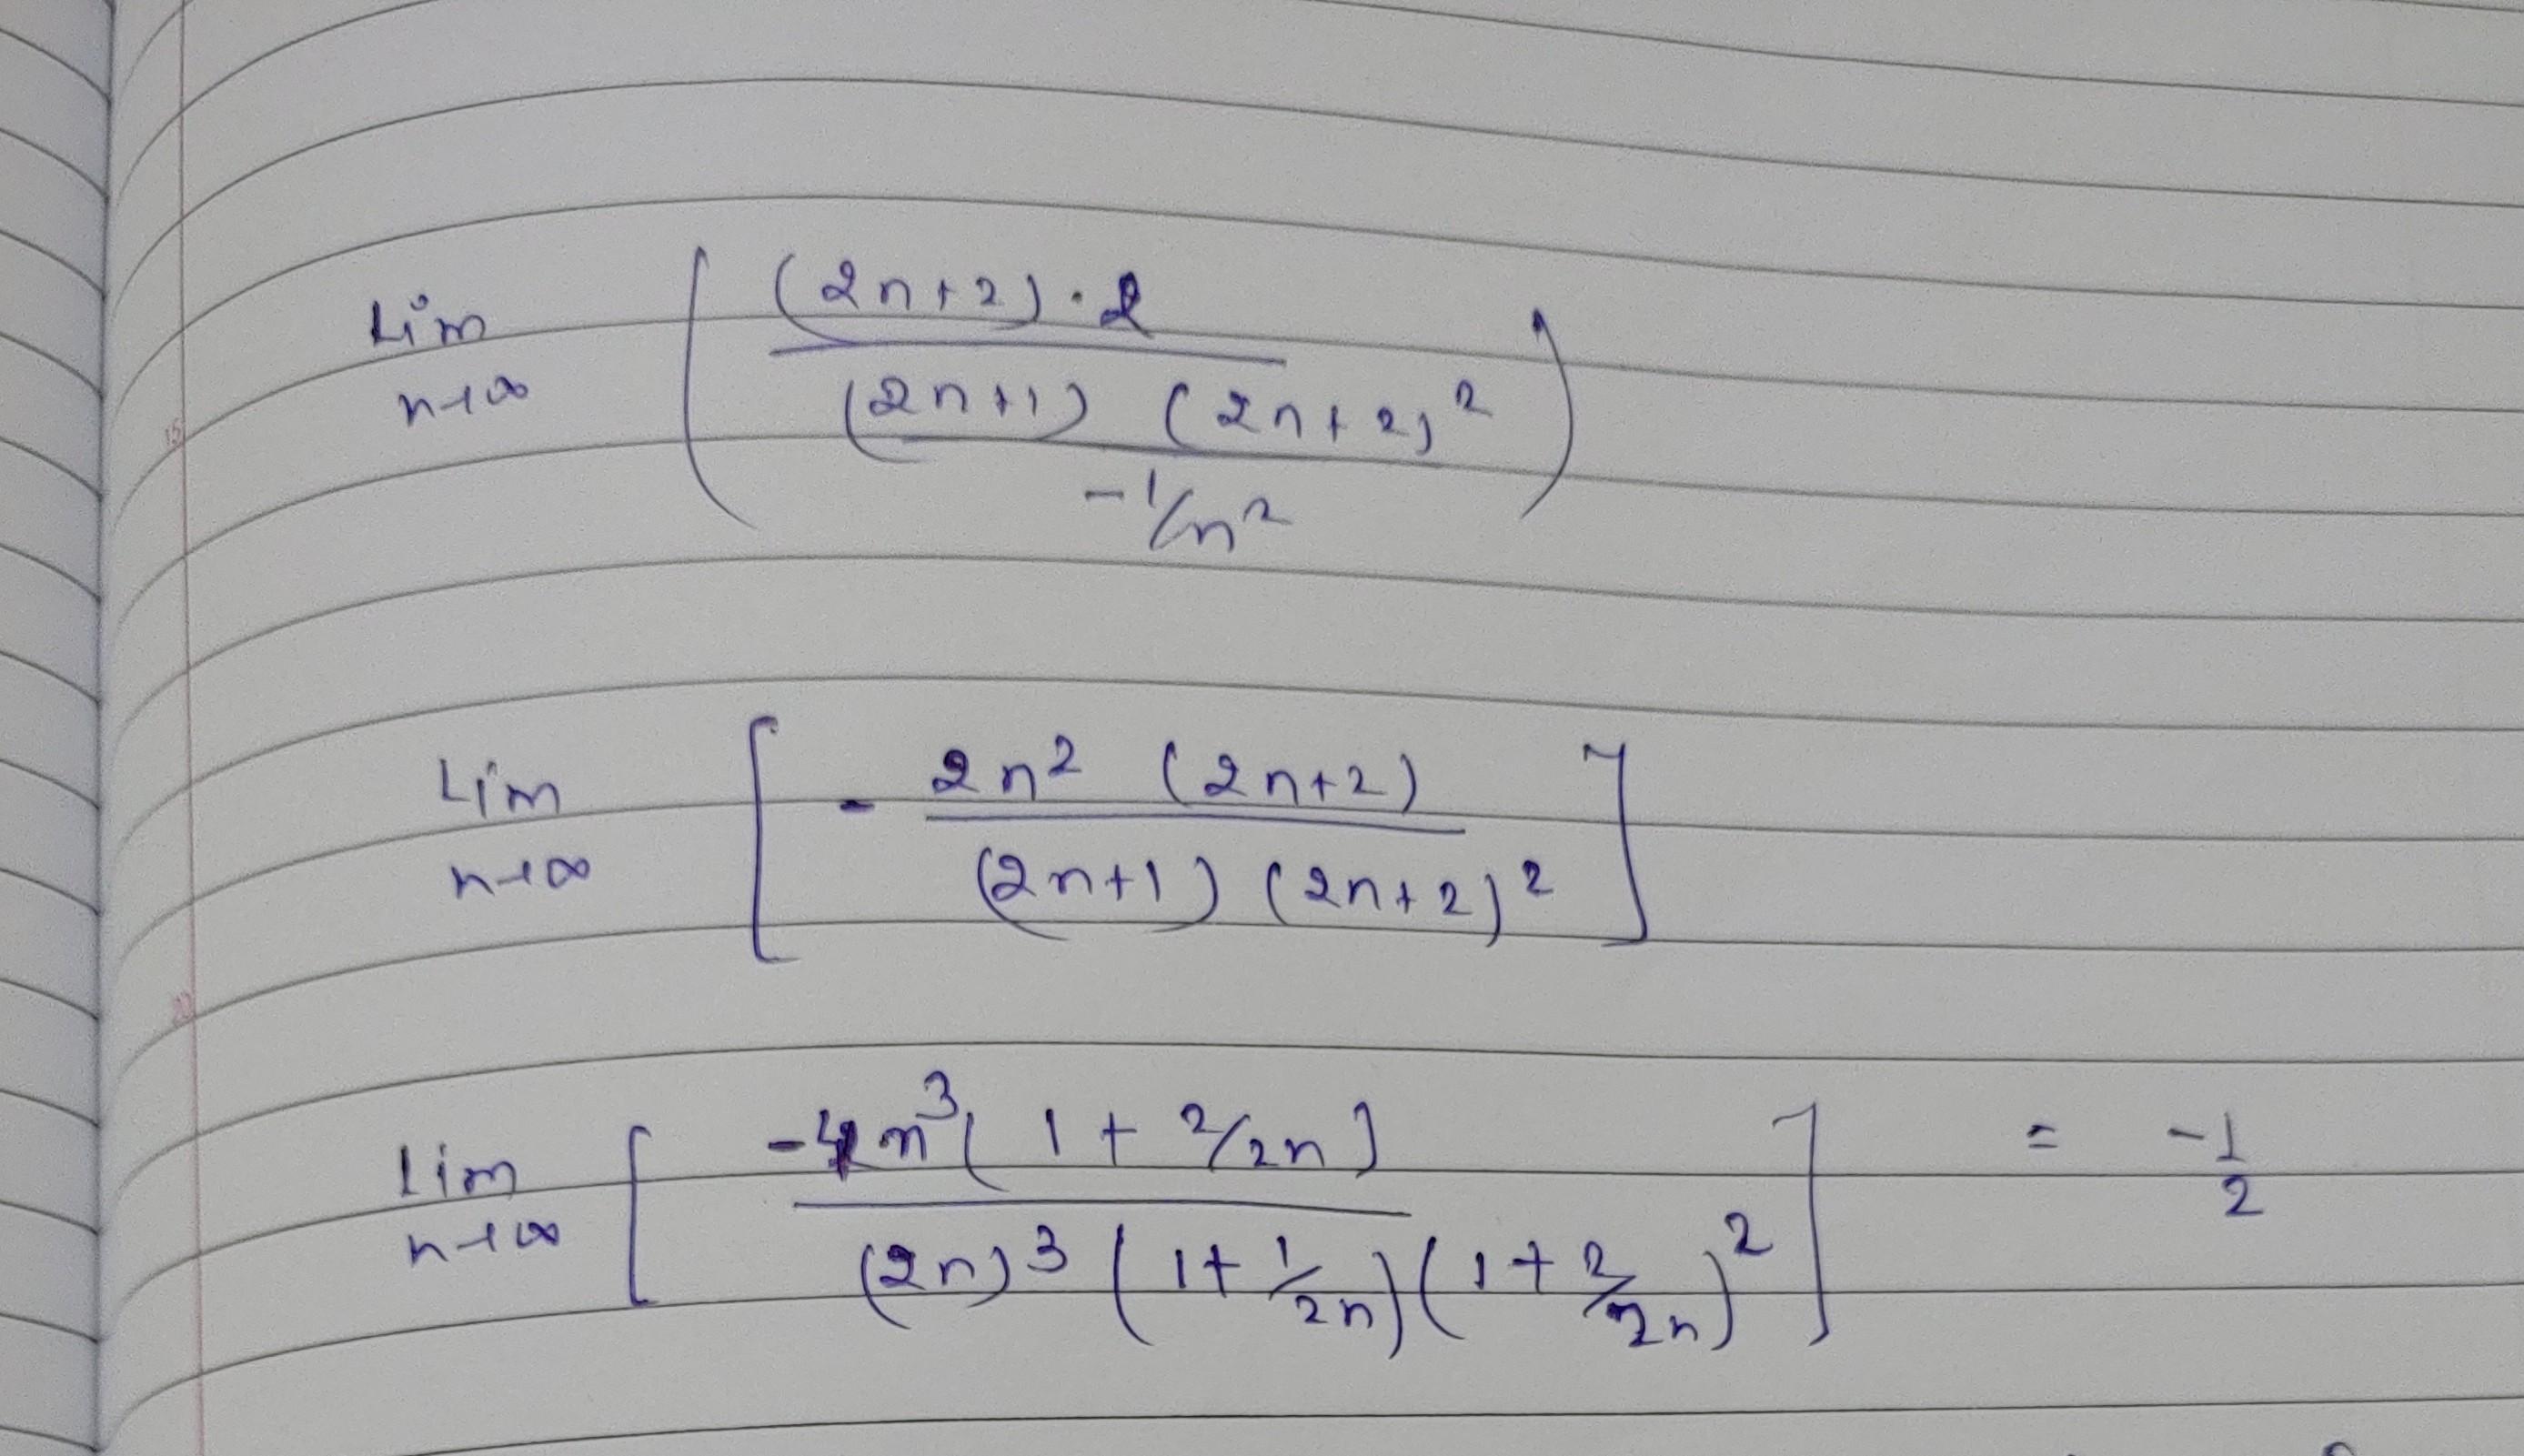 Lim n→∞ ( ( (2n+2)·2 / (2n+1) (2n+2)² ) / -1/n² )
Lim n→∞ [ - 2n² (2n+2) / (2n+1) (2n+2)² ]
Lim n→∞ [ -4n³(1 + 2/2n) / (2n)³ (1+ 1/2n)(1+ 2/2n)² ] = -1/2